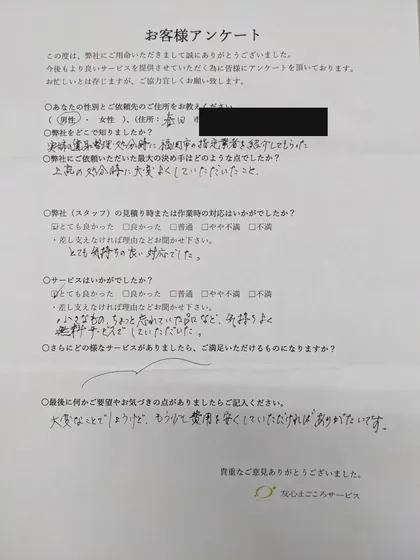 お客様アンケート
この度は、弊社にご用命いただきまして誠にありがとうございました。
今後もより良いサービスを提供させていただく為に皆様にアンケートを頂いております。
お忙しいとは存じますが、ご協力宜しくお願い致します。
○あなたの性別とご依頼先のご住所をお教えください。
(男性・女性)、(住所:春日市
○弊社をどこで知りましたか?
実姉遺品整理処分時に福岡市の指定業者を紹介してもらった
○弊社にご依頼いただいた最大の決め手はどのような点でしたか?
上記の処分時に大変よくしていただいたこと、
○弊社(スタッフ)の見積り時または作業時の対応はいかがでしたか?
☑とても良かった □良かった □普通 □やや不満 □不満
・差し支えなければ理由などお聞かせ下さい。
とても気持ちの良い対応でした。
○サービスはいかがでしたか?
☑とても良かった □良かった □普通 □やや不満 □不満
・差し支えなければ理由などお聞かせ下さい。
小さなもの、ちょっと忘れていた品になど、気持ちよく
無料サービスでしていただいた。
○さらにどの様なサービスがありましたら、ご満足いただけるものになりますか?
○最後に何かご要望やお気づきの点がありましたらご記入ください。
大変なことでしょうけど、もう少し費用を安くしていただければありがたいです。
貴重なご意見ありがとうございました。
友心まごころサービス